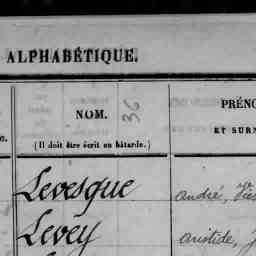 ALPHABÉTIQUE.
NOM. 36 PRÉNO
(Il doit être écrit en bâtarde.) ET SURN
Levesque André,
Levey Aristide,